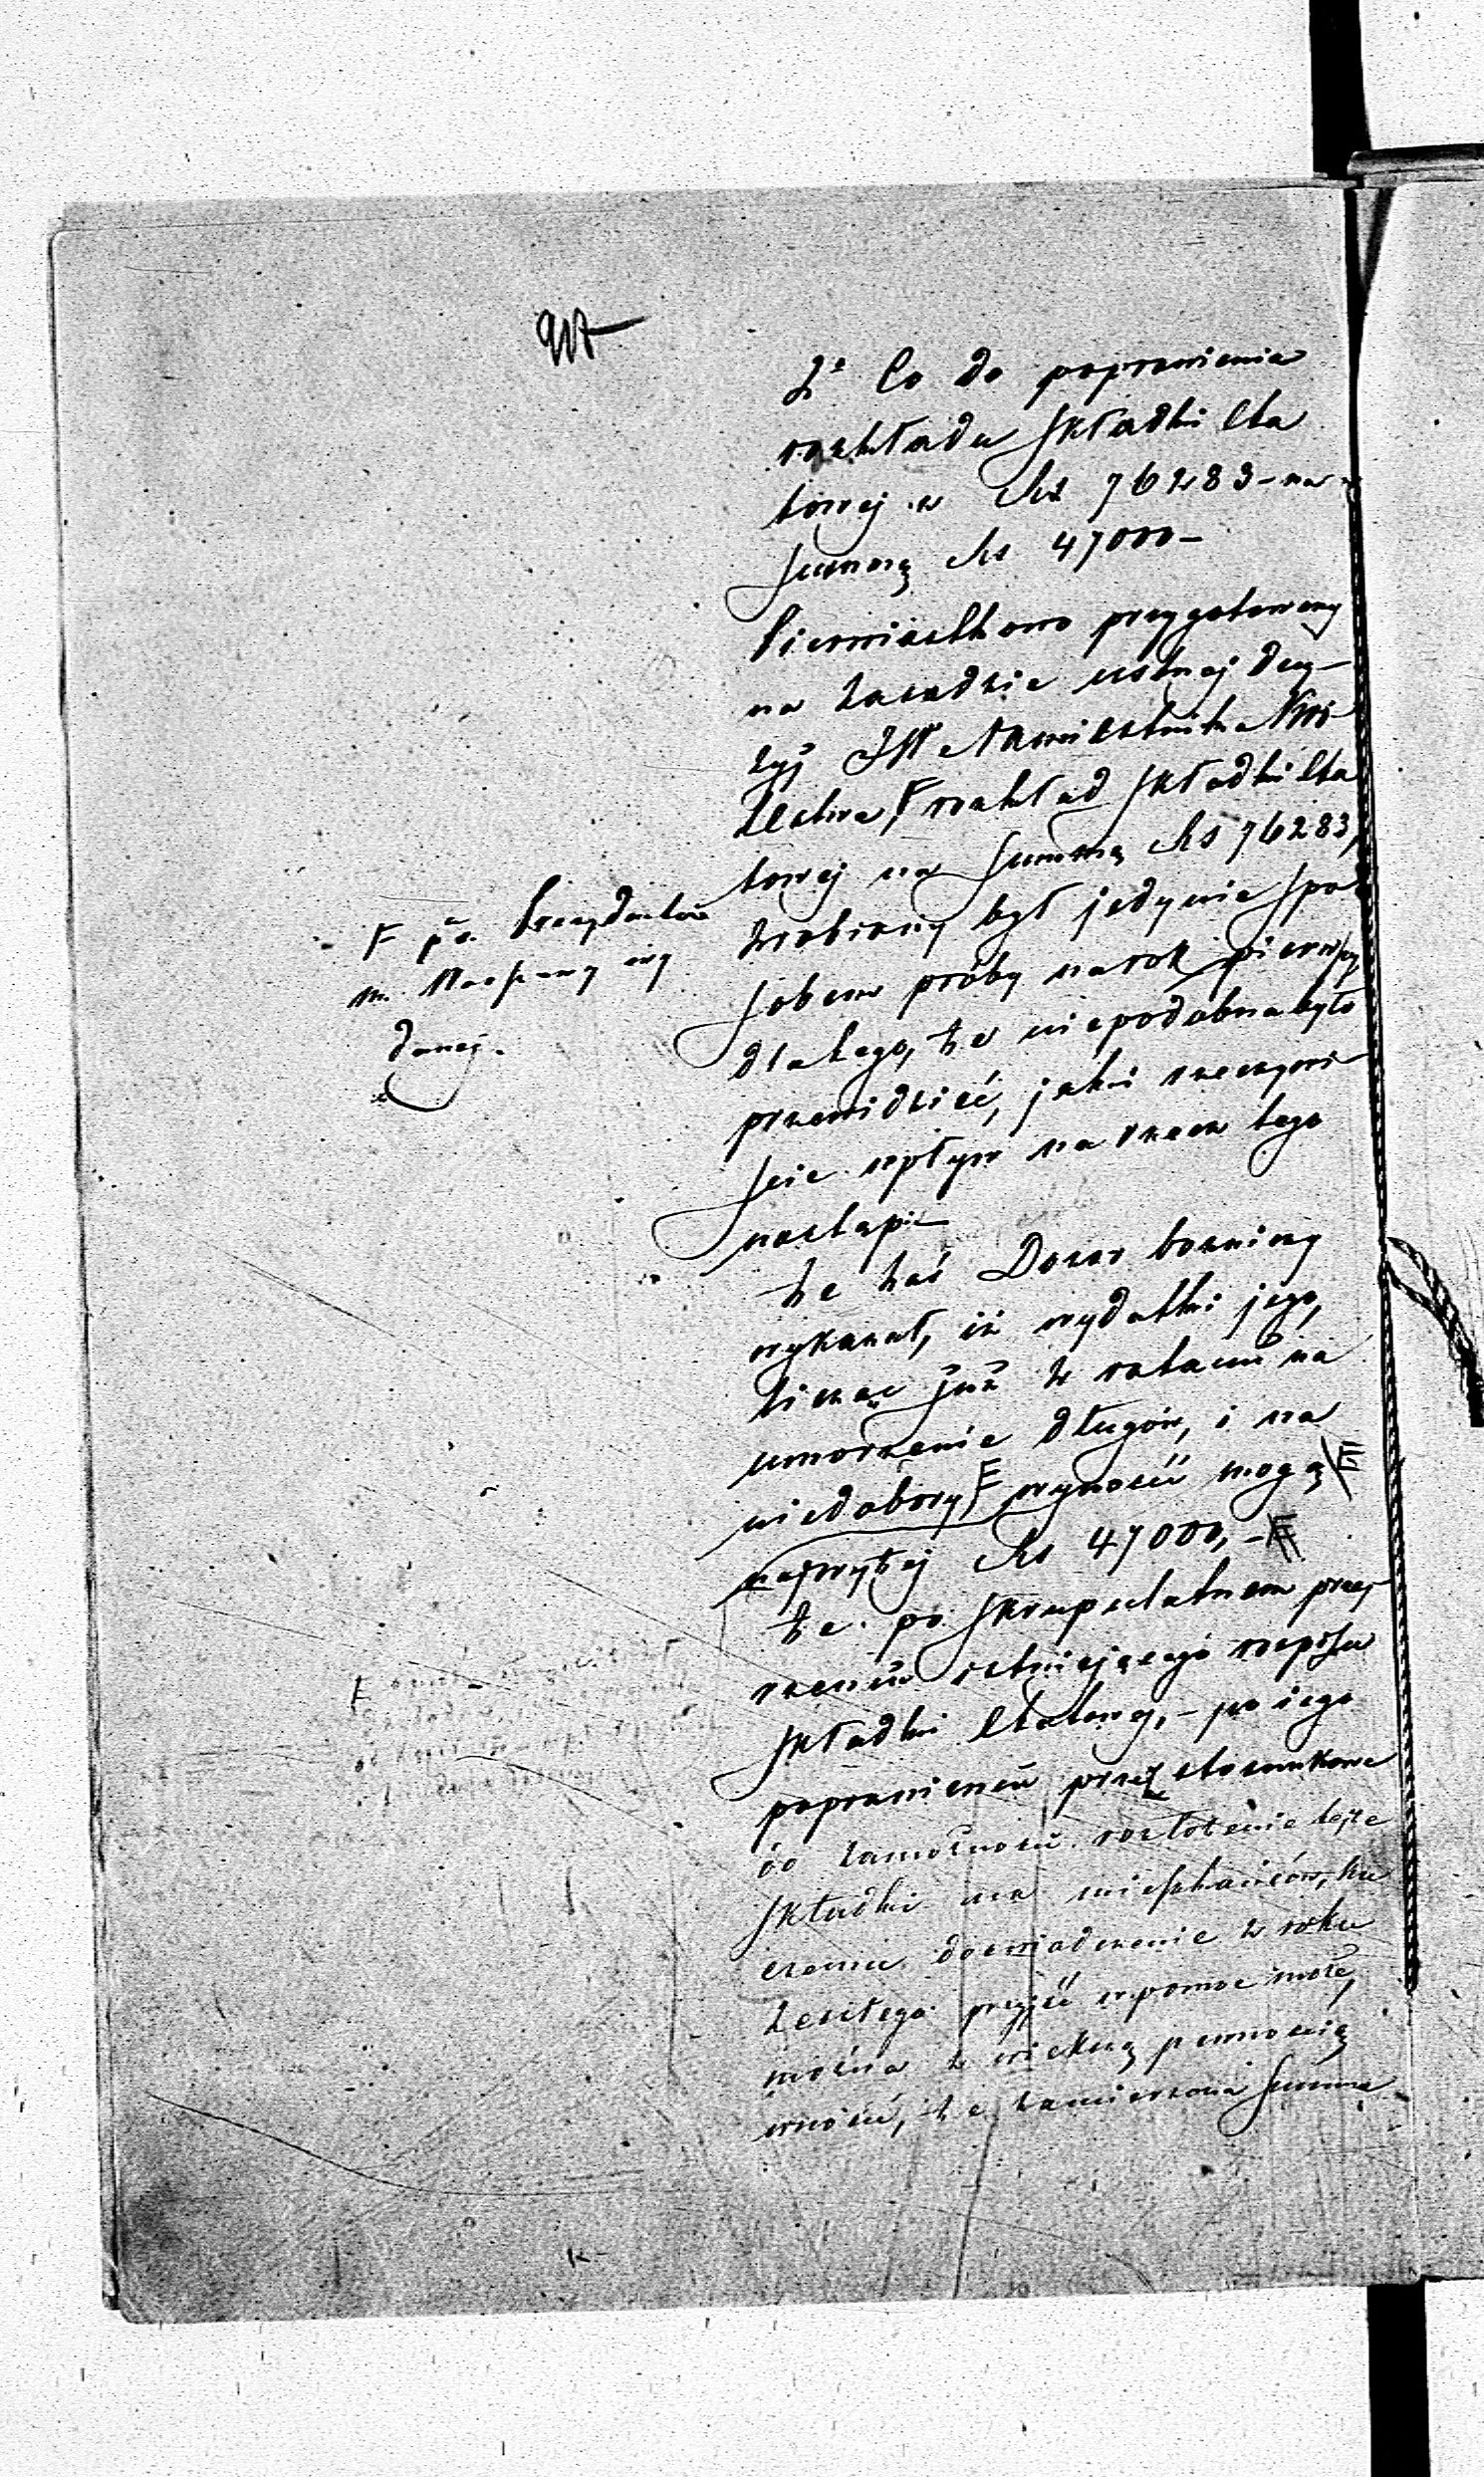 2° Co do poprawienia
rozkładu składki Eta
towej z Rs 76283 - na
summę Rs 47000 -
Pierwiastkowo przygotowany
na zasadzie ustnej decy-
zyj JW Namiestnika Kró
lestwa, F rozkład składki Eta
towej na summę Rs 76283,
zrobiony był jedynie spo
sobem próby na rok pierwszy
dlatego, że niepodobna było
przewidzieć, jaki rzeczywi
ście wpływ na rzecz tego
nastąpi
F p. Prezydentowi
m. Warszawy
danej.
że zaś Dozór bożniczy
wykazał, iż wydatki jego,
licząc już z ratami na
umorzenie długów, i na
niedobory F wynosić mogą
najwyżej Rs 47000, -
że po skrupulatnem przej-
rzeniu istniejącego rozpisu
składki Etatowej, - po jego
poprawieniu przez stosunkowe
do zamożności rozłożenie tejże
składki na mieszkańców, ku
czemu doświadczenie z roku
zeszłego przyjść w pomoc może,
można z większą pewnością
wnosić, że zamierzona summa